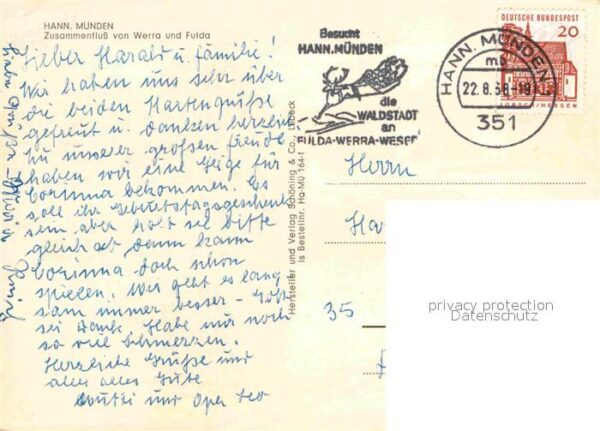 HANN. MÜNDEN
Zusammenfluß von Werra und Fulda
Lieber Harald u. Familie!
Wir haben uns sehr über
die beiden Kartengrüße
gefreut u. danken herzlich
zu unserer großen Freude
haben wir eine Geige für
Corinna bekommen. Es
soll ihr Geburtstagsgeschenk
sein aber holt sie bitte
gleich ab dann kann
Corinna doch schon
spielen. Mir geht es lang
sam immer besser - Gott
sei Dank. Habe nur noch
so viel Schmerzen.
Herzliche Grüße und
alles alles Gute
Mutti und Opa Leo
Hersteller und Verlag Schöning & Co., Lübeck
is Bestellnr. Ha-Mü 164-f
Besucht
HANN.MÜNDEN
die
WALDSTADT
an
FULDA-WERRA-WESER
HANN. MÜNDEN
mb
22.8.68-19
351
DEUTSCHE BUNDESPOST
20
LORSCH/HESSEN
Herrn
Ha
35
privacy protection
Datenschutz